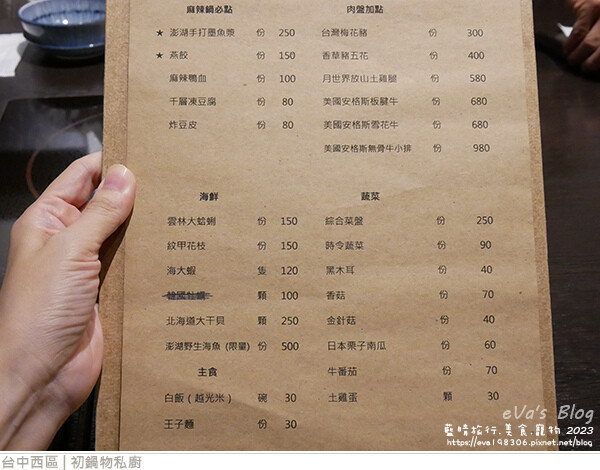 麻辣鍋必點
★ 澎湖手打墨魚漿 份 250
★ 燕餃 份 150
麻辣鴨血 份 100
千層凍豆腐 份 80
炸豆皮 份 80
肉盤加點
台灣梅花豬 份 300
香草豬五花 份 400
月世界放山土雞腿 份 580
美國安格斯板腱牛 份 680
美國安格斯雪花牛 份 680
美國安格斯無骨牛小排 份 980
海鮮
雲林大蛤蜊 份 150
紋甲花枝 份 150
海大蝦 隻 120
韓國牡蠣 顆 100
北海道大干貝 顆 250
澎湖野生海魚 (限量) 份 500
主食
白飯 ( 越光米 ) 碗 30
王子麵 份 30
蔬菜
綜合菜盤 份 250
時令蔬菜 份 90
黑木耳 份 40
香菇 份 70
金針菇 份 40
日本栗子南瓜 份 60
牛番茄 份 70
土雞蛋 顆 30
eVa's Blog
藍晴旅行.美食.寵物 2023
https://eva198306.pixnet.net/blog
台中西區 | 初鍋物私廚